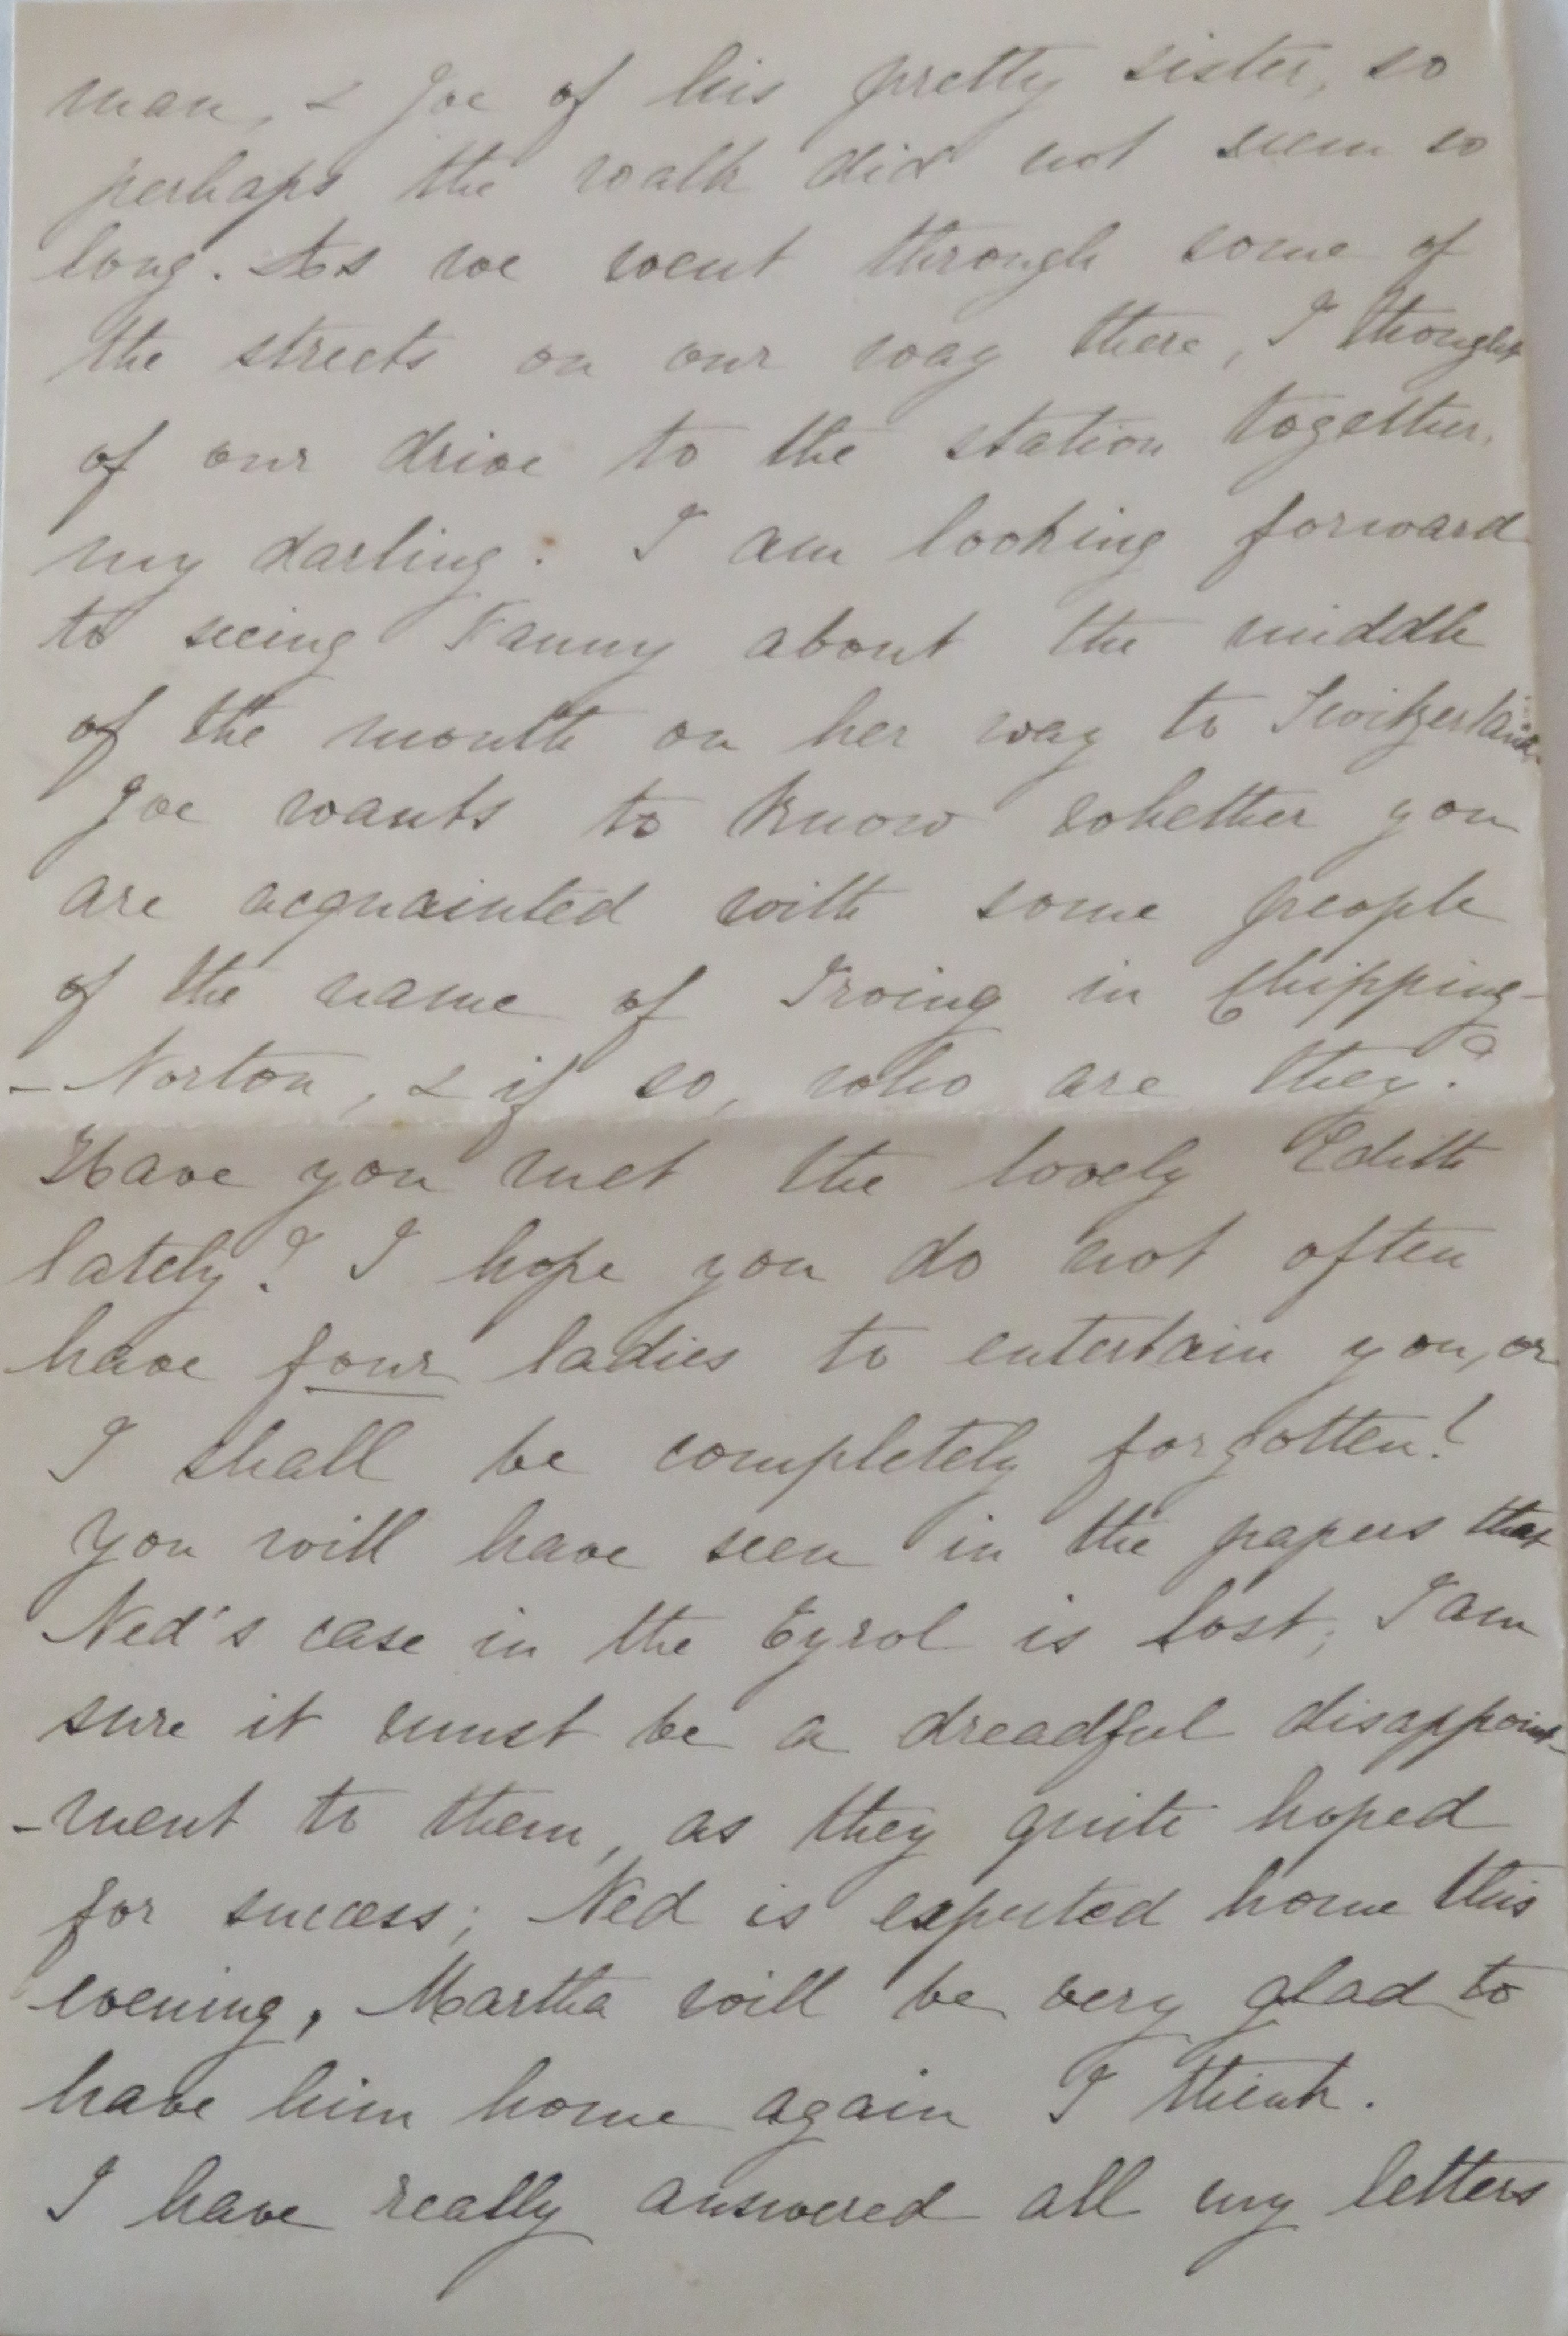 man, & Joe of his pretty sister, so
perhaps the walk did not seem so
long. As we went through some of
the streets on our way there, I thought
of our drive to the station together,
my darling. I am looking forward
to seeing Fanny about the middle
of the month on her way to Switzerland.
Joe wants to know whether you
are acquainted with some people
of the name of Irving in Chipping-
-Norton, & if so, who are they?
Have you met the lovely Edith
lately? I hope you do not often
have four ladies to entertain you, or
I shall be completely forgotten!
You will have seen in the papers that
Ned's case in the Tyrol is lost; I am
sure it must be a dreadful disappoint-
-ment to them, as they quite hoped
for success; Ned is expected home this
evening, Martha will be very glad to
have him home again I think.
I have really answered all my letters